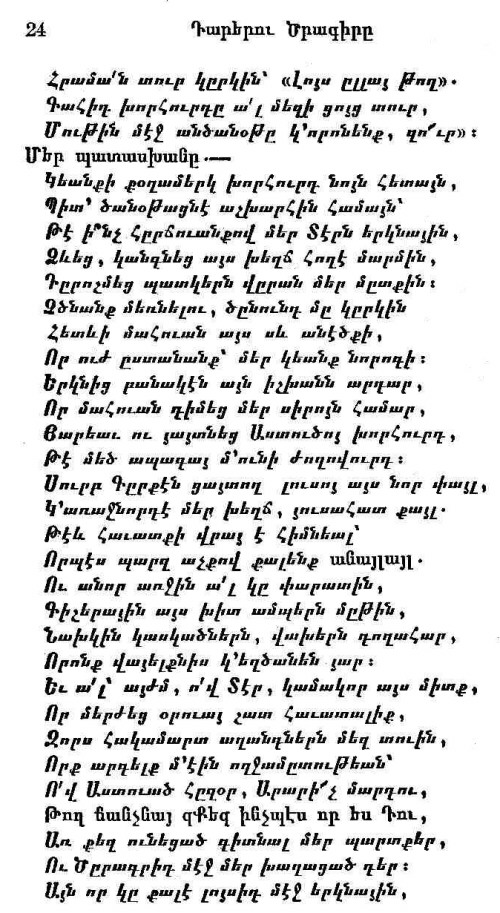 24 Դարերու Ծրագիրը
Հրամա՛ն տուր կըրկին՝ «Լոյս ըլլայ թող»․
Գահիդ խորհուրդը ա՛լ մեզի ցոյց տուր,
Մութին մէջ անծանօթը կ՚որոնենք, զո՜ւր»։
Մեր պատասխանը․—
Կեանքի քօղամերկ խորհուրդ նոյն հետայն,
Պիտ՚ ծանօթացնէ աշխարհին համայն՝
Թէ ի՞նչ հըրճուանքով մեր Տէրն երկնային,
Ձևեց, կանգնեց այս խեղճ հողէ մարմին,
Դըրոշմեց պատկերն վըրան մեր մըտքին։
Չծնանք մեռնելու, ծընունդ մը կըրկին
Հետևի մահուան այս սև անէծքի,
Որ ուժ ըստանանք՝ մեր կեանք նորոգի։
Երկնից բանակէն այն իշխանն արդար,
Որ մահուան դիմեց մեր սիրոյն համար,
Յարեաւ ու յայտնեց Աստուծոյ խորհուրդ,
Թէ մեծ ապագայ մ՚ունի ժողովուրդ։
Սուրբ Գըրքէն ցայտող լուսոյ այս նոր փայլ,
Կ՚առաջնորդէ մեր խեղճ, յուսահատ քայլ․
Թէև հաւատքի վրայ է հիմնեալ՝
Որպէս պարզ աչքով քալենք անայլայլ․
Ու անոր առջին ա՛լ կը փարատին,
Գիշերային այս խիտ ամպերն մըթին,
Նախկին կասկածներն, վախերն դողահար,
Որոնք վայելքնիս կ՚եղծանեն յար։
Եւ ա՛լ՝ այժմ, ո՛վ Տէր, կամակոր այս միտք,
Որ մերժեց օրուայ շատ հաւատալիք,
Զորս հակամարտ աղանդներն մեզ տուին,
Որք արգելք մ՚էին ողջամըտութեան՝
Ո՛վ Աստուած Հըզօր, Արարի՜չ մարդու,
Թող ճանչնայ զՔեզ ինչպէս որ ես Դու,
Առ քեզ ունեցած գիտնալ մեր պարտքեր,
Ու Ծըրագրիդ մէջ մեր խաղացած դեր։
Այն որ կը քալէ լոյսիդ մէջ երկնային,